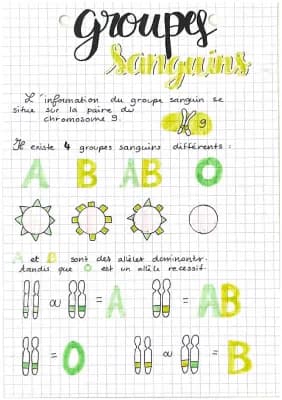 groupes
sanguins
L'information du groupe sanguin se
situe sur la paire du
chromosome 9.
9
Il existe 4 groupes sanguins différents :
A B AB O
A et B sont des allèles dominants.
tandis que O est un allèle recessif.
ou = A = AB
= O ou = B